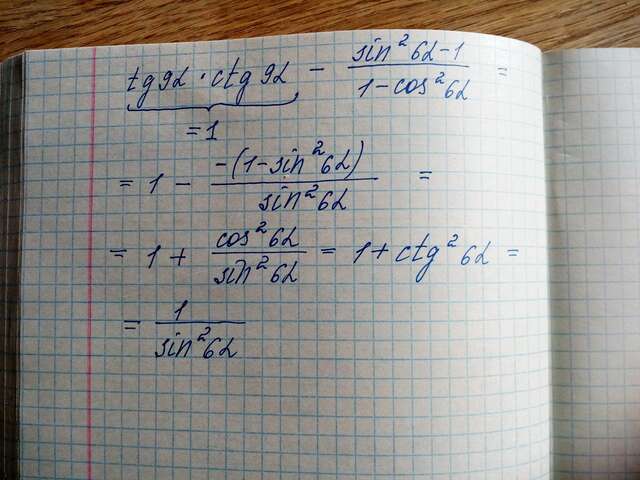 tg9α · ctg9α − (sin²6α−1)/(1−cos²6α) =
=1
= 1 − (−(1−sin²6α))/(sin²6α) =
= 1 + cos²6α/sin²6α = 1 + ctg²6α =
= 1/sin²6α